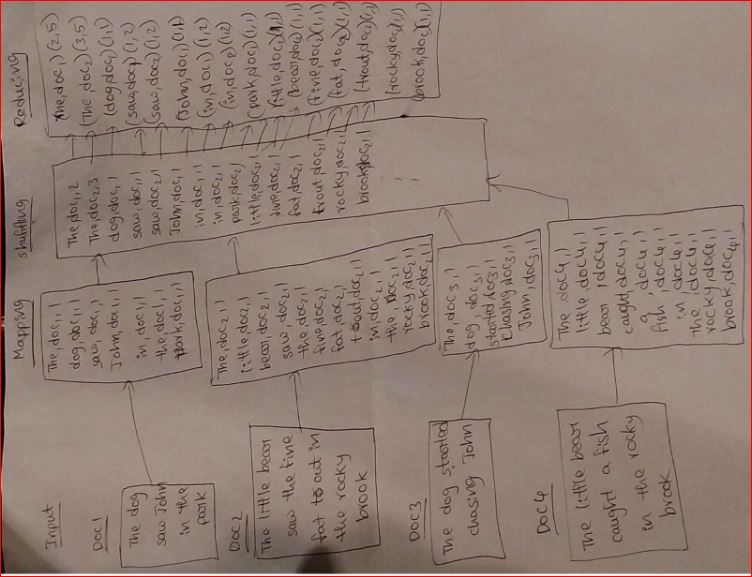 Input
Doc1
The dog
saw John
in the
park
Doc2
The little bear
saw the fine
fat trout in
the rocky
brook
Doc3
The dog started
chasing John
Doc4
The little bear
caught a fish
in the rocky
brook
Mapping
The, doc1, 1
dog, doc1, 1
saw, doc1, 1
John, doc1, 1
in, doc1, 1
the doc1, 1
park, doc1, 1
The, doc2, 1
little, doc2, 1
bear, doc2, 1
saw, doc2, 1
the, doc2, 1
fine, doc2, 1
fat, doc2, 1
trout, doc2, 1
in doc2, 1
the doc2, 1
rocky doc2, 1
brook, doc2, 1
The, doc3, 1
dog, doc3, 1
started, doc3, 1
Chasing, doc3, 1
John, doc3, 1
The doc4, 1
little doc4, 1
bear, doc4, 1
caught, doc4, 1
doc4, 1
fish, doc4, 1
in doc4, 1
the, doc4, 1
rocky doc4, 1
brook, doc4, 1
Shuffling
The, doc1, 2
The, doc2, 3
dog, doc1, 1
saw, doc1, 1
saw, doc2, 1
John, doc1, 1
in, doc1, 1
in, doc2, 1
park, doc2,
little, doc2, 1
fine, doc2, 1
fat, doc2, 1
trout, doc2, 1
rocky, doc2, 1
brook, doc2, 1
Reducing
(The, doc1) (2,5)
(The, doc2) (3,5)
(dog, doc1) (1,1)
(saw, doc1) (1,2)
(saw, doc2) (1,2)
(John, doc1) (1,1)
(in, doc1) (1,2)
(in, doc2) (1,2
(park, doc2) (1,1)
(little, doc2) (1,1)
(bear, doc2) (1,1)
(fine, doc2) (1,1)
(fat, doc2) (1,1)
(trout, doc2) (1,1)
(rocky, doc2) (1,1)
(brook, doc2) (1,1)